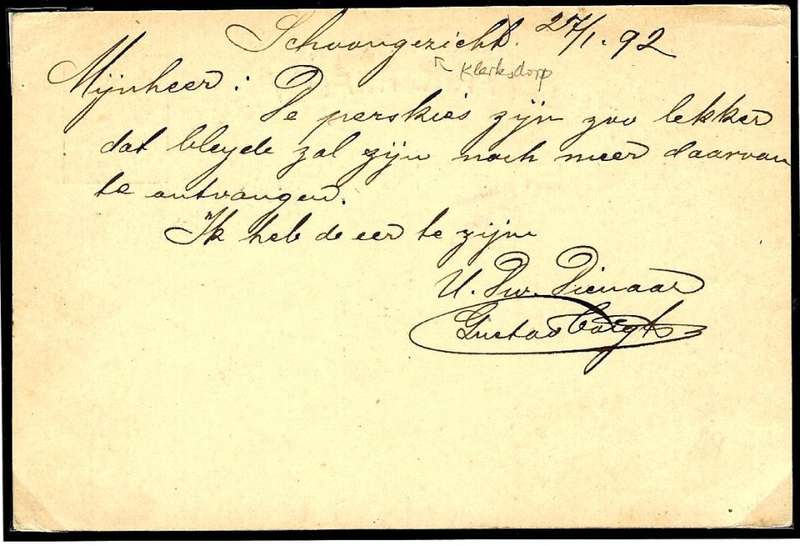 Schoongezicht. 27/1. 92
Klerksdorp
Mijnheer: De perskies zijn zoo lekker
dat bleyde zal zijn noch meer daarvan
te ontvangen.
Ik heb de eer te zijn
U. Dw. Dienaar
Gustav